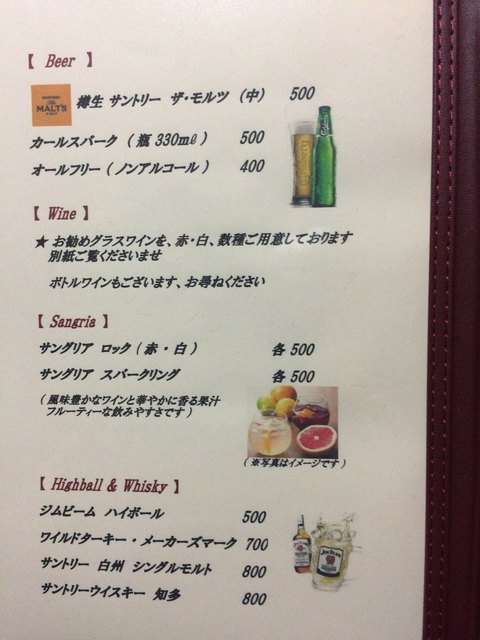 【 Beer 】
MALT'S
樽生 サントリー ザ・モルツ (中) 500
カールスバーク ( 瓶 330mℓ ) 500
オールフリー ( ノンアルコール ) 400
【 Wine 】
★ お勧めグラスワインを、赤・白、数種ご用意しております
別紙ご覧くださいませ
ボトルワインもございます、お尋ねください
【 Sangria 】
サングリア ロック ( 赤 ・ 白 ) 各 500
サングリア スパークリング 各 500
( 風味豊かなワインと華やかに香る果汁
フルーティーな飲みやすさです )
( ※写真はイメージです )
【 Highball & Whisky 】
ジムビーム ハイボール 500
ワイルドターキー・メーカーズマーク 700
サントリー 白州 シングルモルト 800
サントリーウイスキー 知多 800